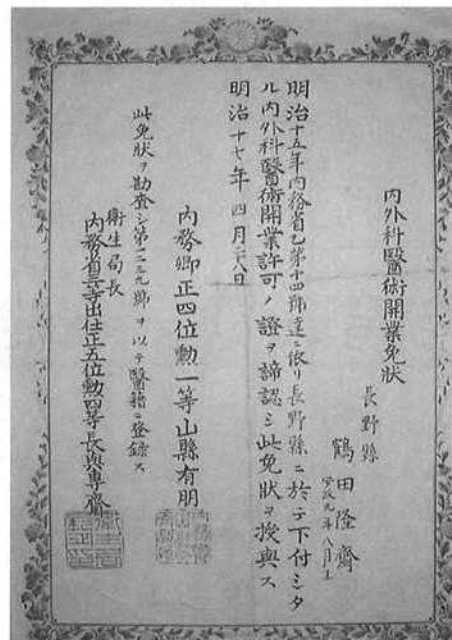 内外科醫術開業免狀
長野縣
鶴田隆齋
安政元年八月生
明治十五年内務省乙第十四號達ニ依リ長野縣ニ於テ下付シタ
ル内外科醫術開業許可ノ證ヲ諦認シ此免狀ヲ授與ス
明治十七年四月二八日
内務卿正四位勳一等山縣有朋
此免狀ヲ勘査シ第二三九號ヲ以テ醫籍ニ登錄ス
衞生局長
内務省三等出仕正五位勳四等長與專齋